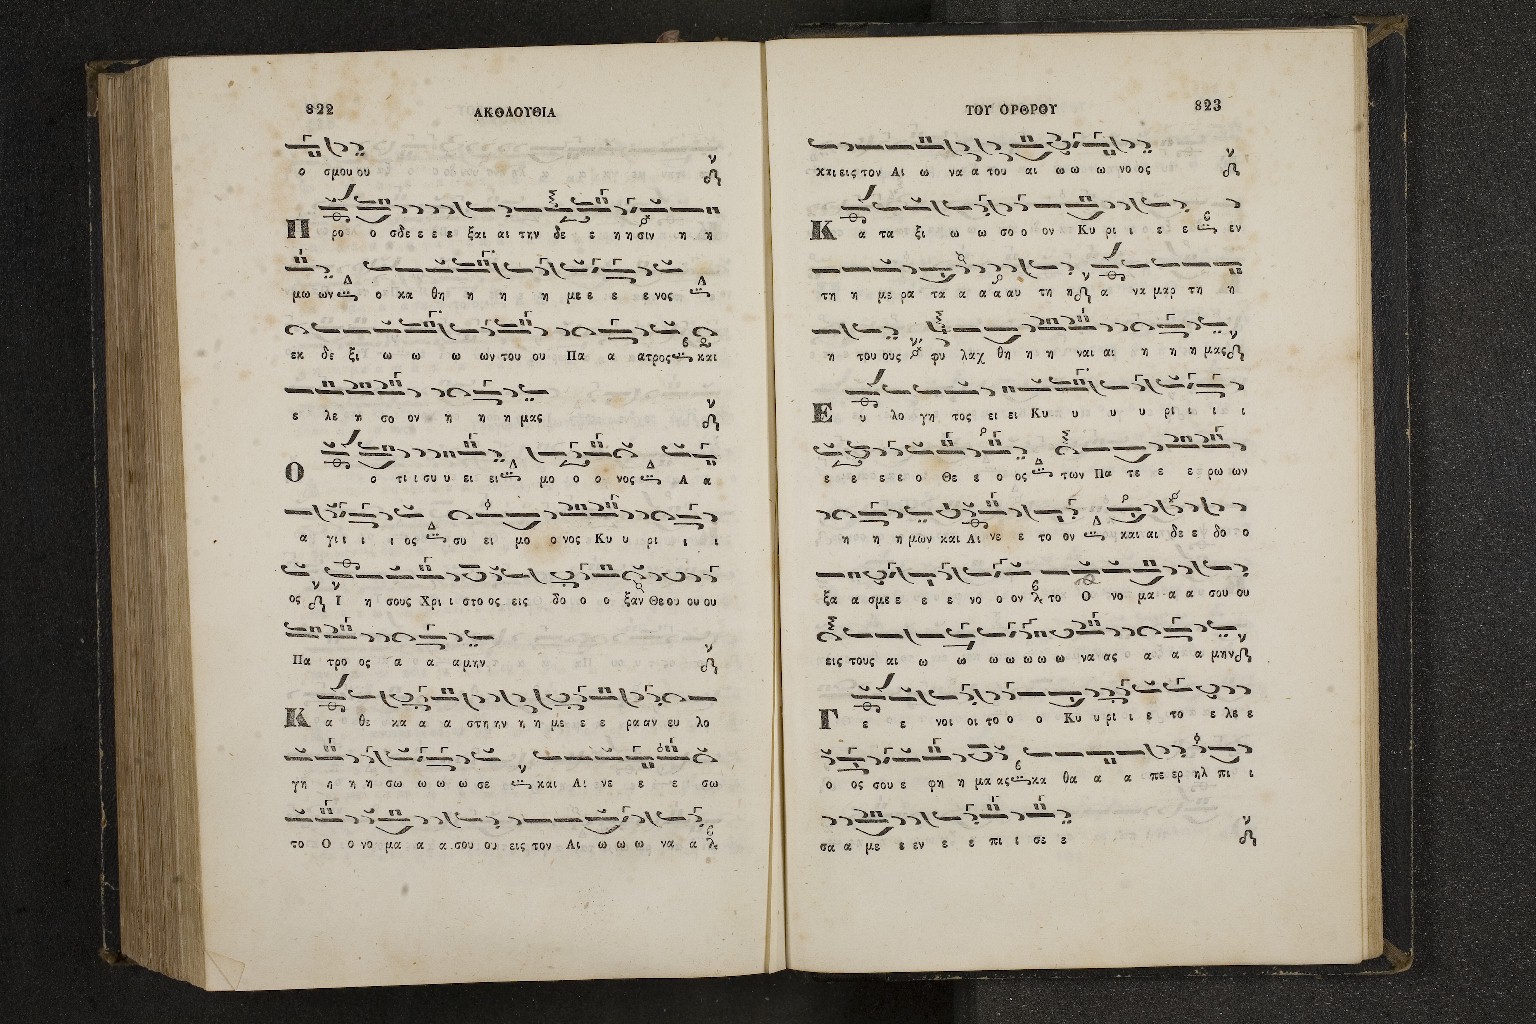 822 ΑΚΟΛΟΥΘΙΑ
ο σμου ου
Προ ο σδε ε ε ε ξαι αι την δε ε η η σιν η η
μω ων ο κα θη η η η με ε ε ε νος
εκ δε ξι ω ω ω ων του ου Πα α ατρος και
ε λε η σο ον η η η μας
Ο ο τι ι συ υ ει ει μο ο ο νος Α α
α γι ι ι ι ος συ ει μο ο νος Κυ υ ρι ι ι
ος Ι η σους Χρι ι στο ος εις δο ο ο ξαν Θε ου ου ου
Πα τρο ος α α α μην
Κα θε κα α α στη ην η η με ε ε ρα αν ευ λο
γη η η η σω ω ω ω σε και Αι νε ε ε σω
το Ο ο νο μα α α σου ου εις τον Αι ω ω ω να α
ΤΟΥ ΟΡΘΡΟΥ 823
και εις τον Αι ω να α του αι ω ω ω νο ος
Κα τα ξι ω ω σο ο ον Κυ ρι ι ε ε εν
τη η με ρα τα α α α αυ τη η α να μαρ τη η
η του ους φυ λαχ θη η η ναι αι η η η μας
Ευ λο γη τος ει ει Κυ υ υ υ ρι ι ι ι
ε ε ε ε ο Θε ε ο ος των Πα τε ε ε ρω ων
η η η μων και Αι νε ε το ον και αι δε ε δο ο
ξα α σμε ε ε ε νο ο ον το Ο νο μα α α σου ου
εις τους αι ω ω ω ω ω ω ω να ας α α α μην
Γε ε νοι οι το ο ο Κυ υ ρι ι ε το ε λε ε
ο ος σου ε φη η μα ας κα θα α α πε ερ ηλ πι ι
σα α με ε εν ε ε πι ι σε ε